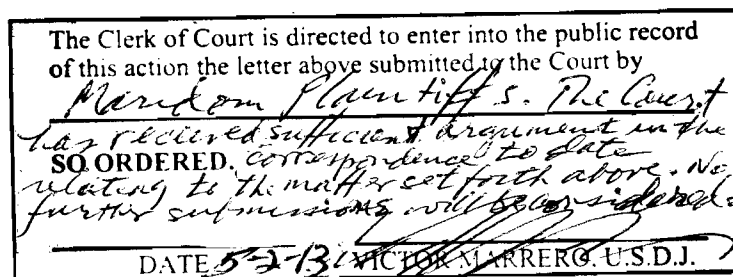 The Clerk of Court is directed to enter into the public record
of this action the letter above submitted to the Court by
Maridom Plaintiffs. The Court
has recieved sufficient argument in the
SO ORDERED. correspondence to date
relating to the matter set forth above. No
further submissions will be considered.
DATE 5-2-13 VICTOR MARRERO. U.S.D.J.